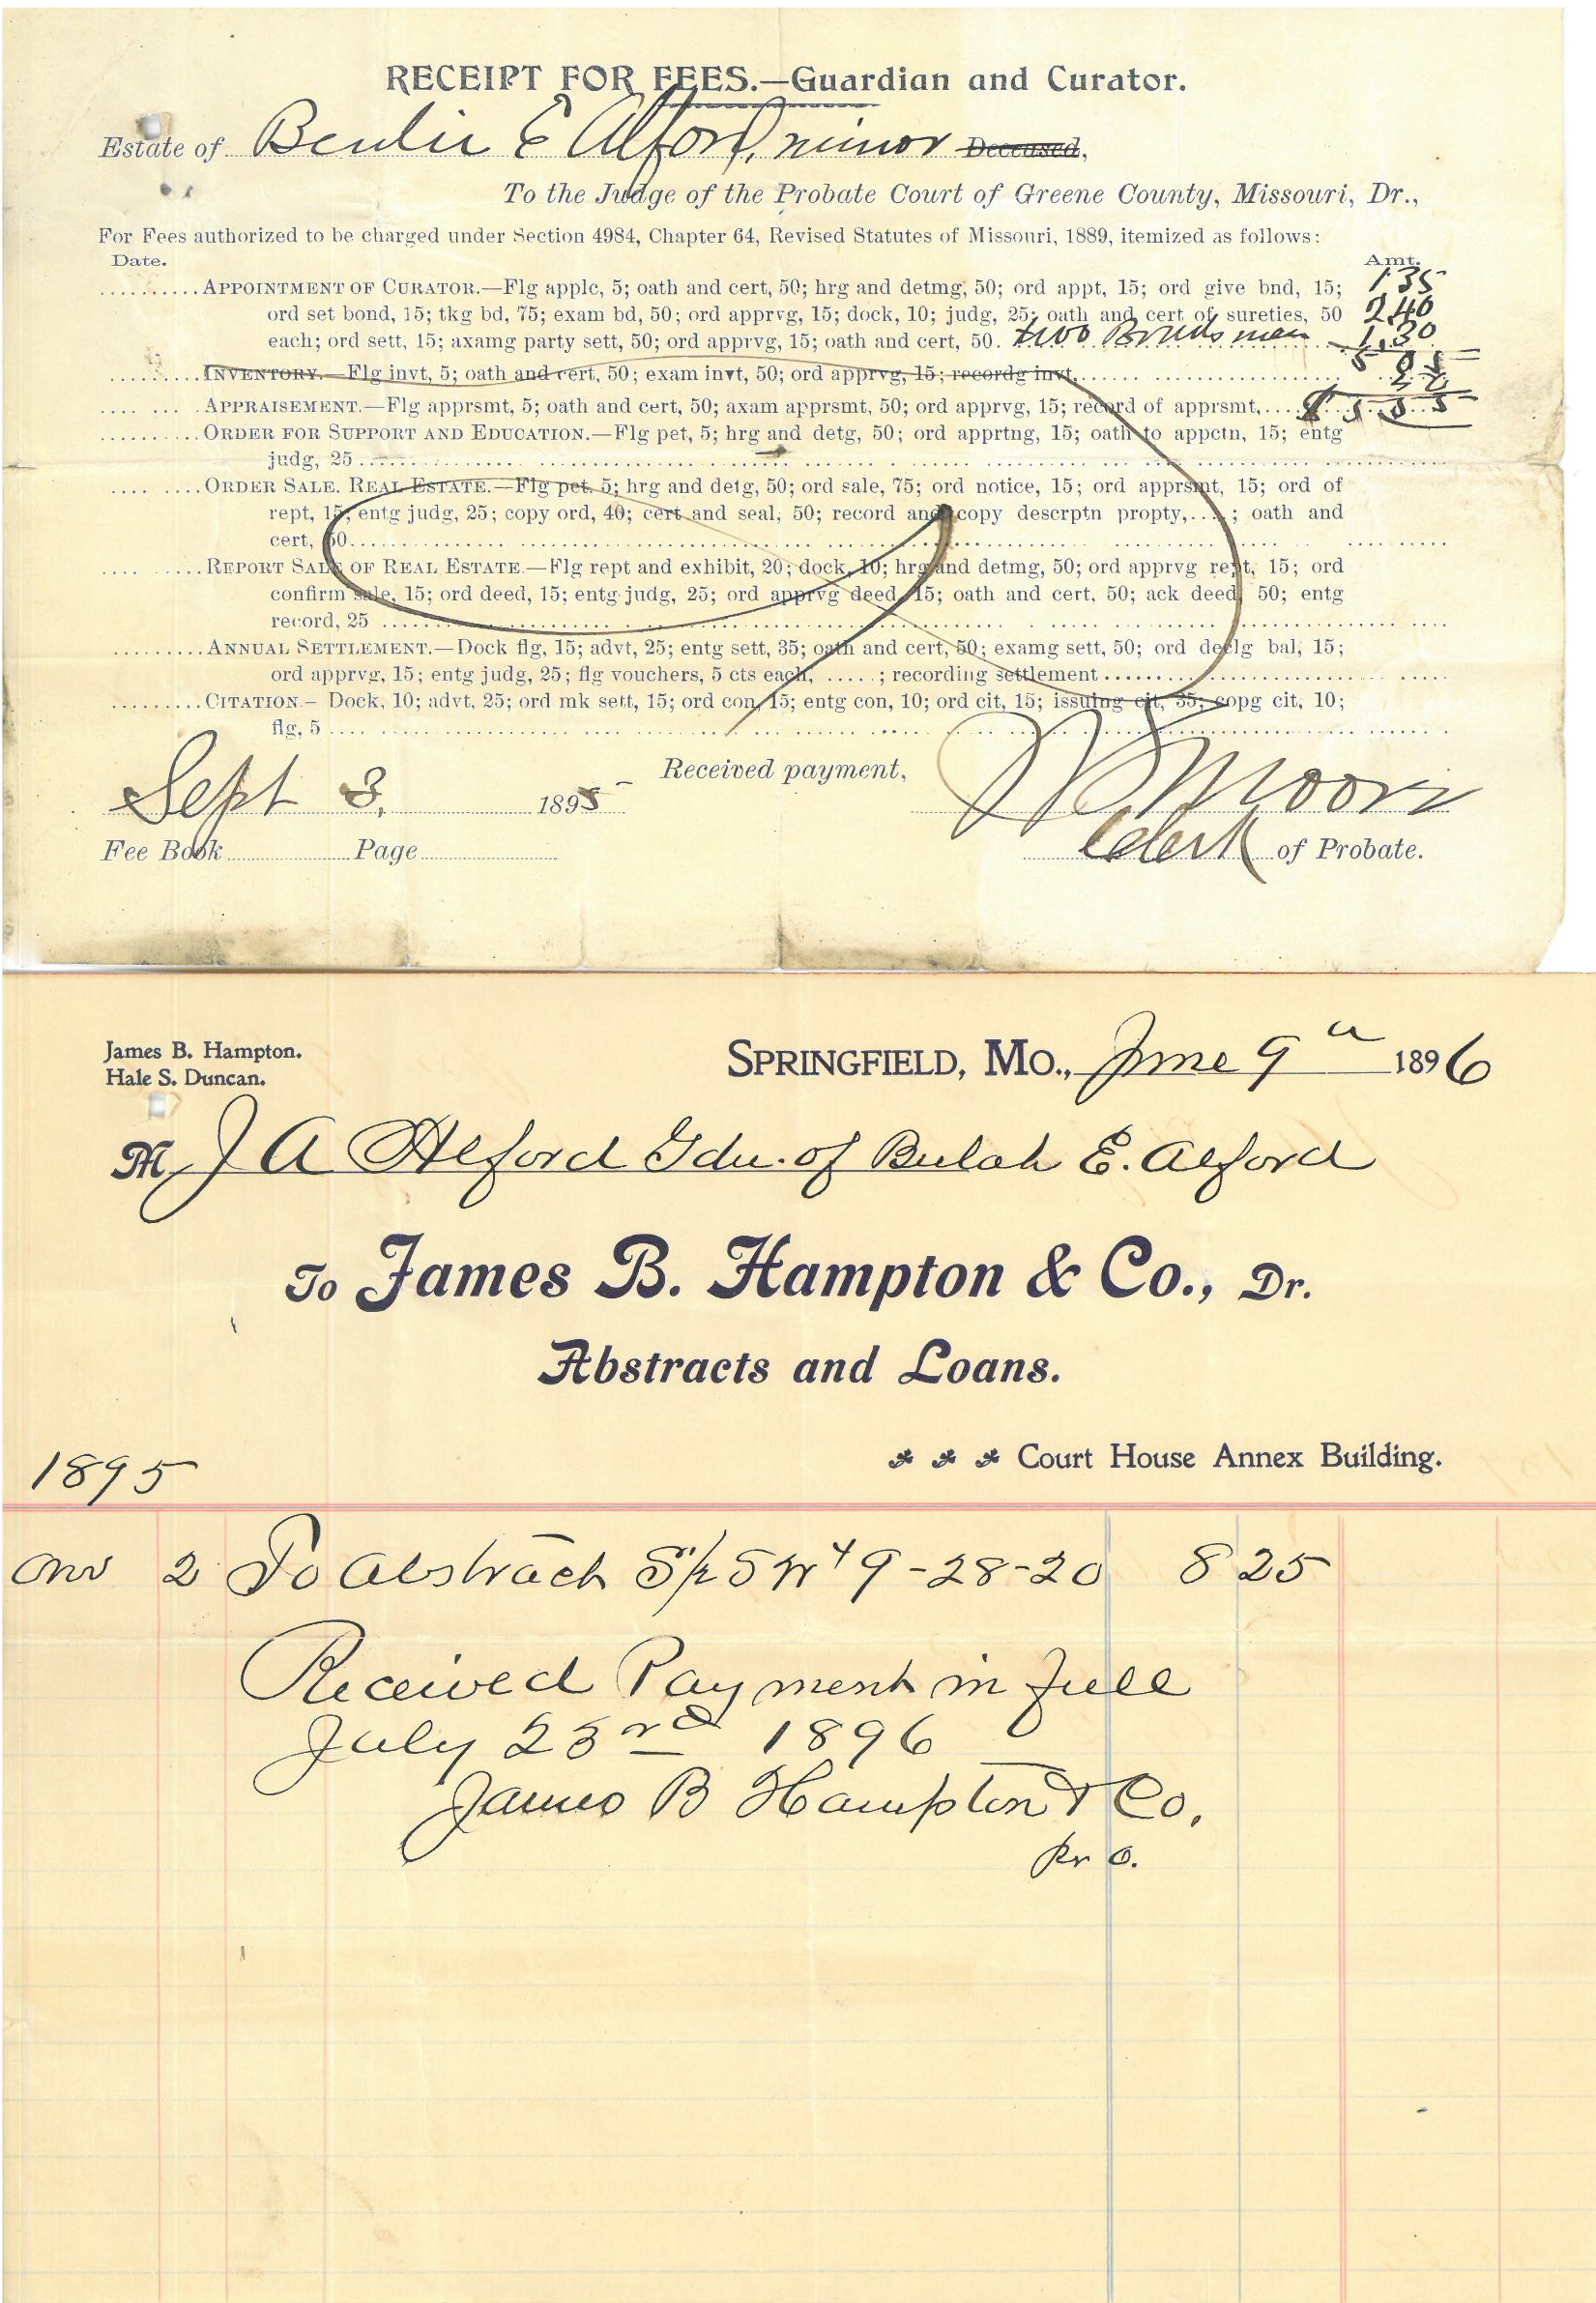 RECEIPT FOR FEES.—Guardian and Curator.
Estate of Beulie E Alford, minor Deceased,
To the Judge of the Probate Court of Greene County, Missouri, Dr.,
For Fees authorized to be charged under Section 4984, Chapter 64, Revised Statutes of Missouri, 1889, itemized as follows:
Date. Amt.
APPOINTMENT OF CURATOR.—Flg applc, 5; oath and cert, 50; hrg and detmg, 50; ord appt, 15; ord give bnd, 15; 135
ord set bond, 15; tkg bd, 75; exam bd, 50; ord apprvg, 15; dock, 10; judg, 25; oath and cert of sureties, 50 2,40
each; ord sett, 15; axamg party sett, 50; ord apprvg, 15; oath and cert, 50. two Bondsmen 1,30
5 05
INVENTORY.—Flg invt, 5; oath and cert, 50; exam invt, 50; ord apprvg, 15; recordg invt,
APPRAISEMENT.—Flg apprsmt, 5; oath and cert, 50; axam apprsmt, 50; ord apprvg, 15; record of apprsmt,
ORDER FOR SUPPORT AND EDUCATION.—Flg pet, 5; hrg and detg, 50; ord apprtng, 15; oath to appctn, 15; entg
judg, 25
ORDER SALE. REAL ESTATE.—Flg pet. 5; hrg and detg, 50; ord sale, 75; ord notice, 15; ord apprsmt, 15; ord of
rept, 15; entg judg, 25; copy ord, 40; cert and seal, 50; record and copy descrptn propty,....; oath and
cert, 50
REPORT SALE OF REAL ESTATE.—Flg rept and exhibit, 20; dock, 10; hrg and detmg, 50; ord apprvg rept, 15; ord
confirm sale, 15; ord deed, 15; entg judg, 25; ord apprvg deed, 15; oath and cert, 50; ack deed, 50; entg
record, 25
ANNUAL SETTLEMENT.—Dock flg, 15; advt, 25; entg sett, 35; oath and cert, 50; examg sett, 50; ord declg bal, 15;
ord apprvg, 15; entg judg, 25; flg vouchers, 5 cts each, .....; recording settlement
CITATION.– Dock, 10; advt, 25; ord mk sett, 15; ord con, 15; entg con, 10; ord cit, 15; issuing cit, 35; copg cit, 10;
flg, 5
Received payment,
Sept 3, 1895 Moore
Fee Book Page Clerk of Probate.
James B. Hampton.
Hale S. Duncan.
SPRINGFIELD, MO., June 9 1896
M J A Alford Gdn. of Bulah E. Alford
To James B. Hampton & Co., Dr.
Abstracts and Loans.
Court House Annex Building.
1895
Nov 2 To Abstract S½ SW4 9-28-20 8 25
Received Payment in full
July 23rd 1896
James B Hampton & Co.
Pr O.